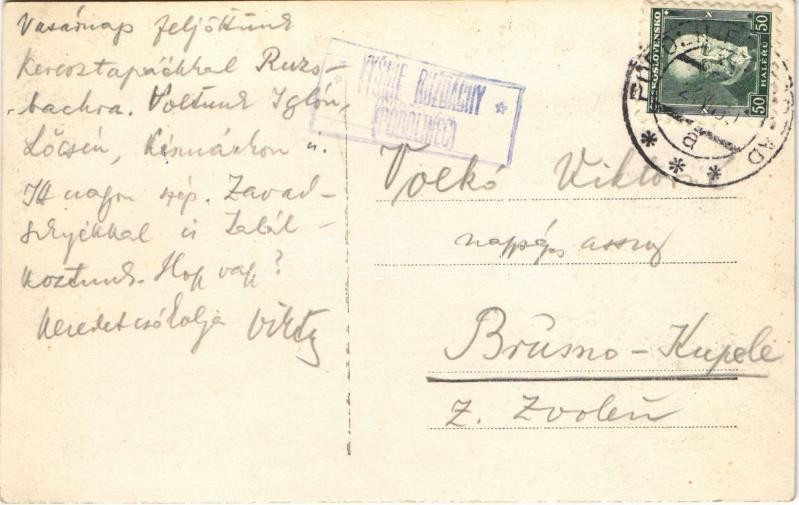 Vasárnap feljöttünk
Keresztapáékkal Ruzs-
bachra. Voltunk Iglón,
Lőcsén, Késmárkon is.
Itt nagyon szép. Zavad-
szkyékkal is talál-
koztunk. Hogy vagy?
Kezedet csókolja
VYŠNIE RUŽBACHY
(PODOLINEC)
ČESKOSLOVENSKO
50 HALÉRŮ 50
Volkó Viktor
nagyságos asszony
Brusno-Kupele
z. Zvolen